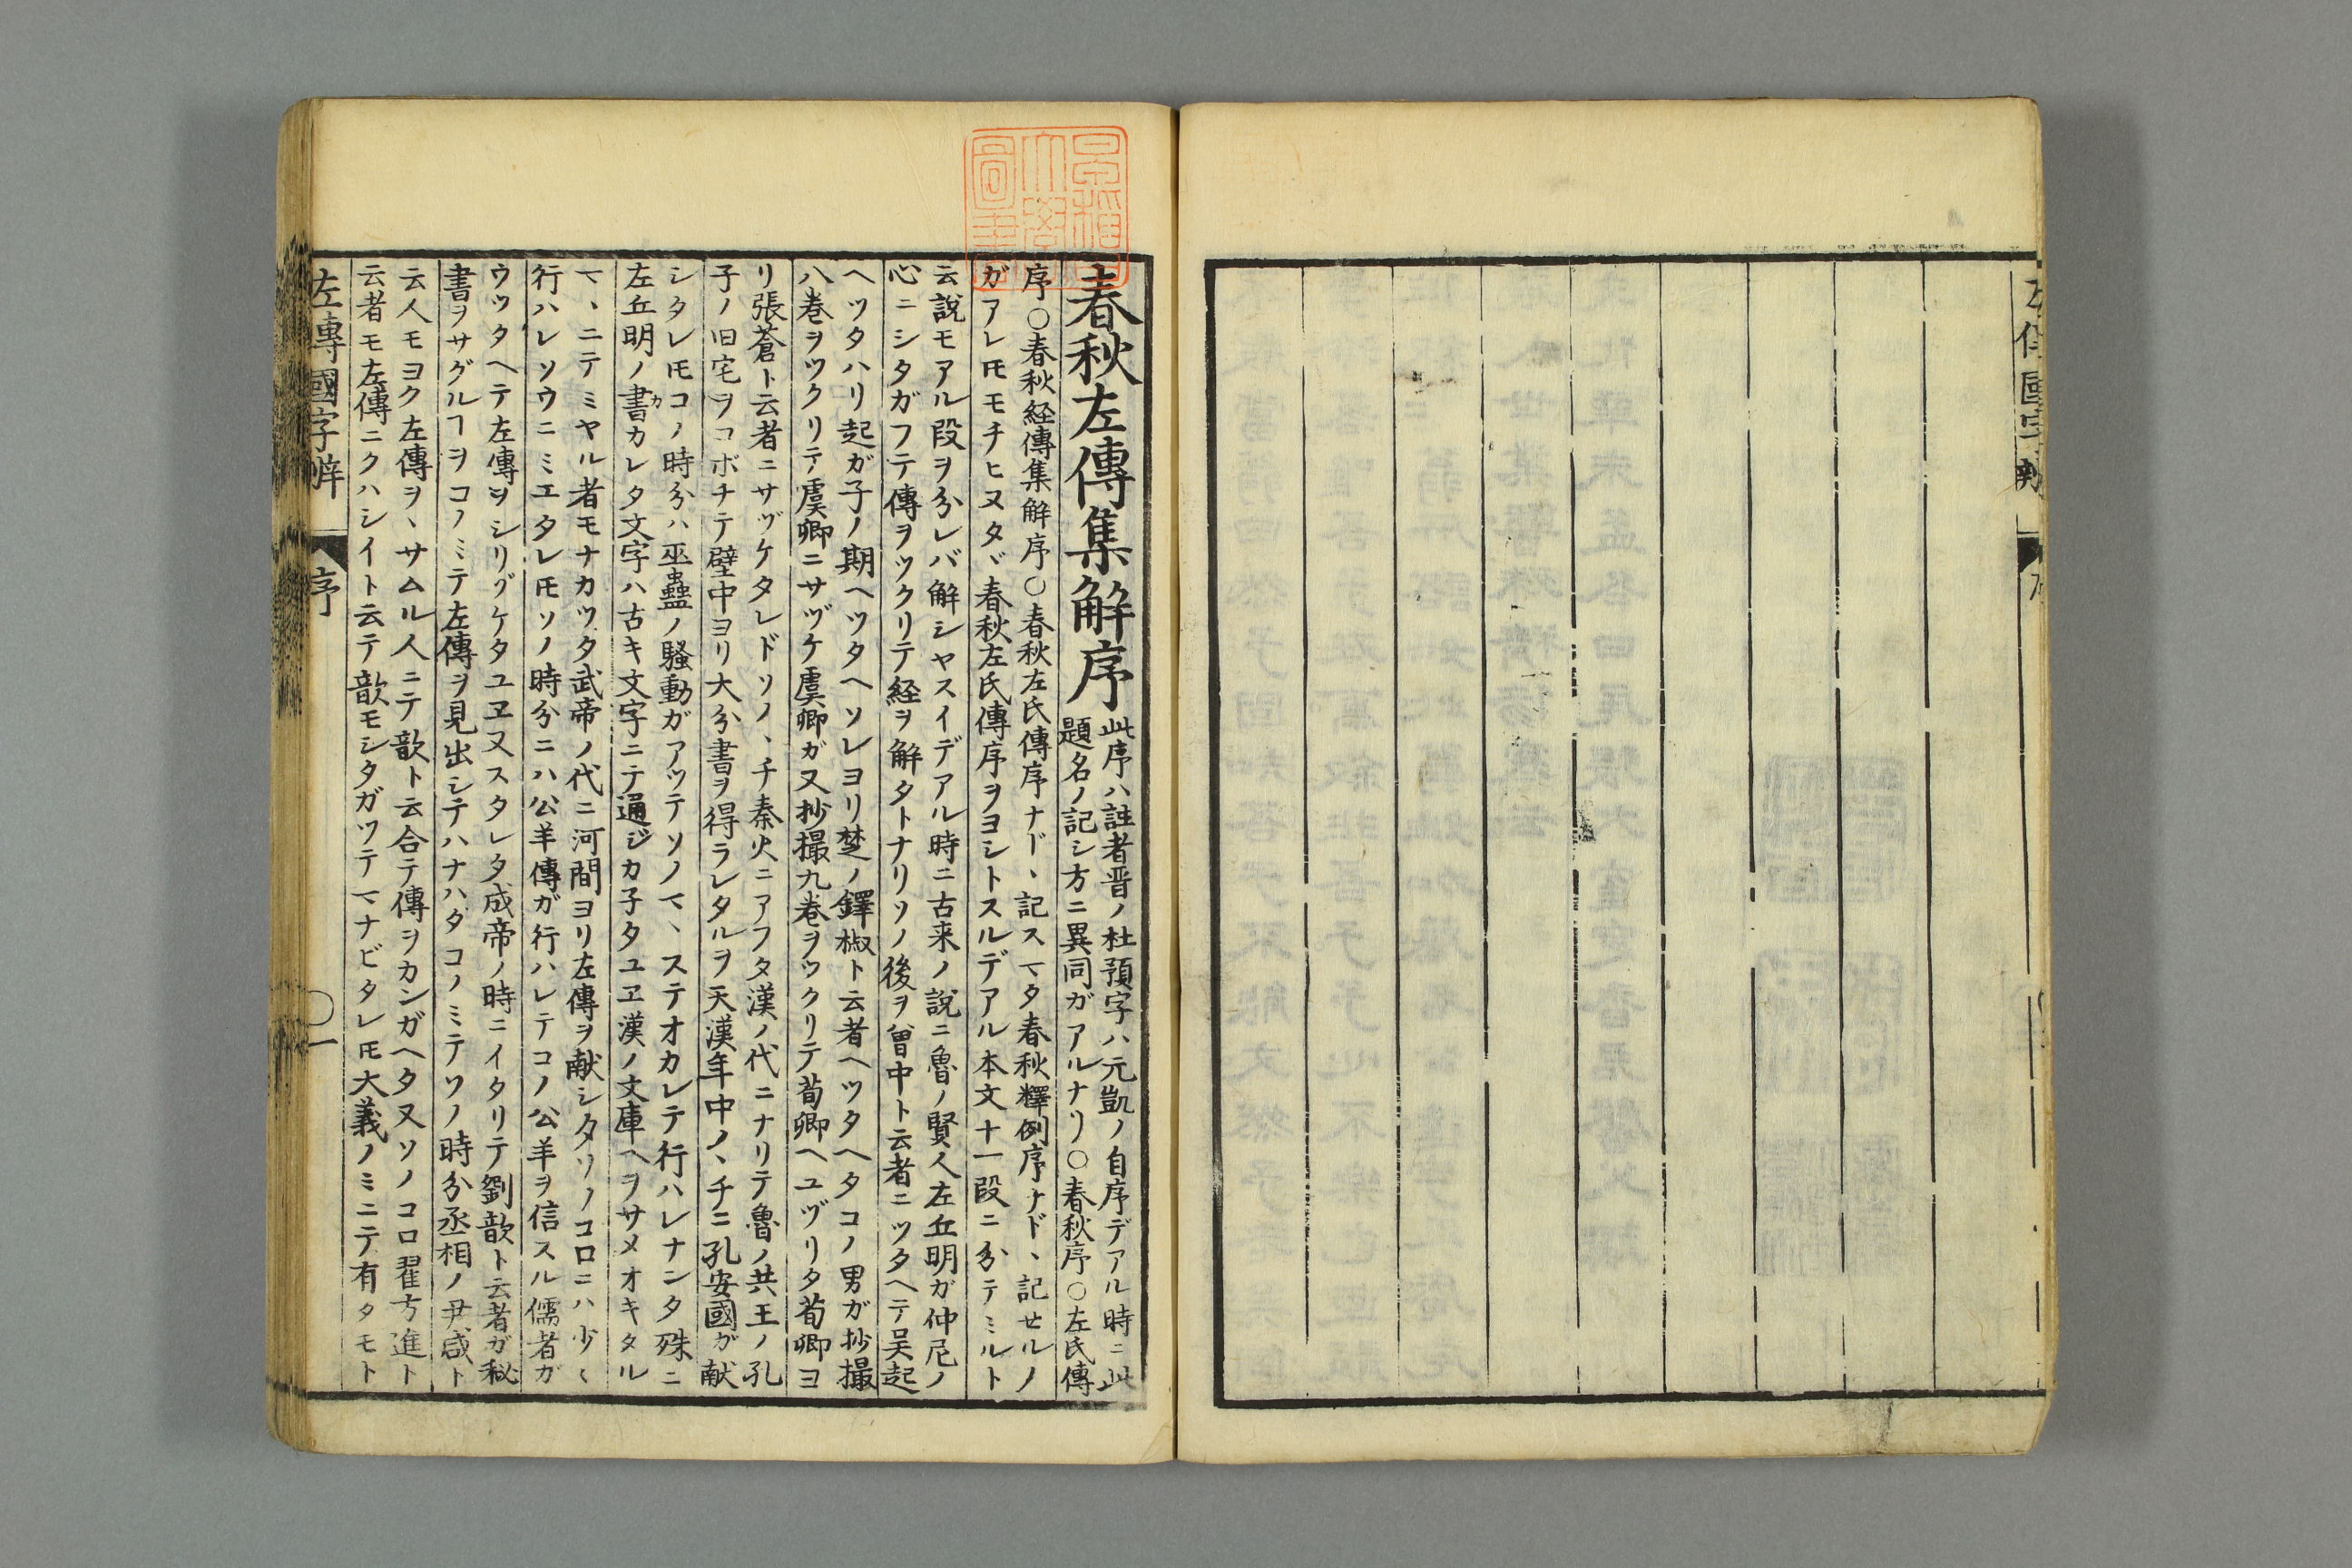 春秋左傳集解序
此序ハ註者晋ノ杜預字ハ元凱ノ自序デアル時ニ此
題名ノ記シ方ニ異同ガアルナリ○春秋序○左氏傳
序○春秋経傳集解序○春秋左氏傳序ナド、記スマタ春秋釋例序ナド、記セルノ
ガアレ𪜈モチヒヌタヾ春秋左氏傳序ヲヨシトスルデアル本文十一段ニ分テミルト
云説モアル段ヲ分レバ解シヤスイデアル時ニ古来ノ説ニ魯ノ賢人左丘明ガ仲尼ノ
心ニシタガフテ傳ヲツクリテ経ヲ解タトナリソノ後ヲ曽中ト云者ニツタヘテ呉起
ヘツタハリ起ガ子ノ期ヘツタヘソレヨリ楚ノ鐸椒ト云者ヘツタヘタコノ男ガ抄撮
八巻ヲツクリテ虞卿ニサヅケ虞卿ガ又抄撮九巻ヲツクリテ荀卿ヘユヅリタ荀卿ヨ
リ張蒼ト云者ニサヅケタレドソノ、チ秦火ニアフタ漢ノ代ニナリテ魯ノ共王ノ孔
子ノ旧宅ヲコボチテ壁中ヨリ大分書ヲ得ラレタルヲ天漢年中ノ、チニ孔安國ガ献
シタレ𪜈コノ時分ハ巫蠱ノ騒動ガアツテソノマ、ステオカレテ行ハレナンタ殊ニ
左丘明ノ書カレタ文字ハ古キ文字ニテ通ジカ子タユヱ漢ノ文庫ヘヲサメオキタル
マ、ニテミヤル者モナカツタ武帝ノ代ニ河間ヨリ左傳ヲ献シタソノコロニハ少〻
行ハレソウニミエタレ𪜈ソノ時分ニハ公羊傳ガ行ハレテコノ公羊ヲ信スル儒者ガ
ウツタヘテ左傳ヲシリゾケタユヱ又スタレタ成帝ノ時ニイタリテ劉歆ト云者ガ秘
書ヲサグルヿヲコノミテ左傳ヲ見出シテハナハタコノミテソノ時分丞相ノ尹咸ト
云人モヨク左傳ヲ、サムル人ニテ歆ト云合テ傳ヲカンガヘタ又ソノコロ翟方進ト
云者モ左傳ニクハシイト云テ歆モシタガツテマナビタレ𪜈大義ノミニテ有タモト
左傳國字辨
序
○一